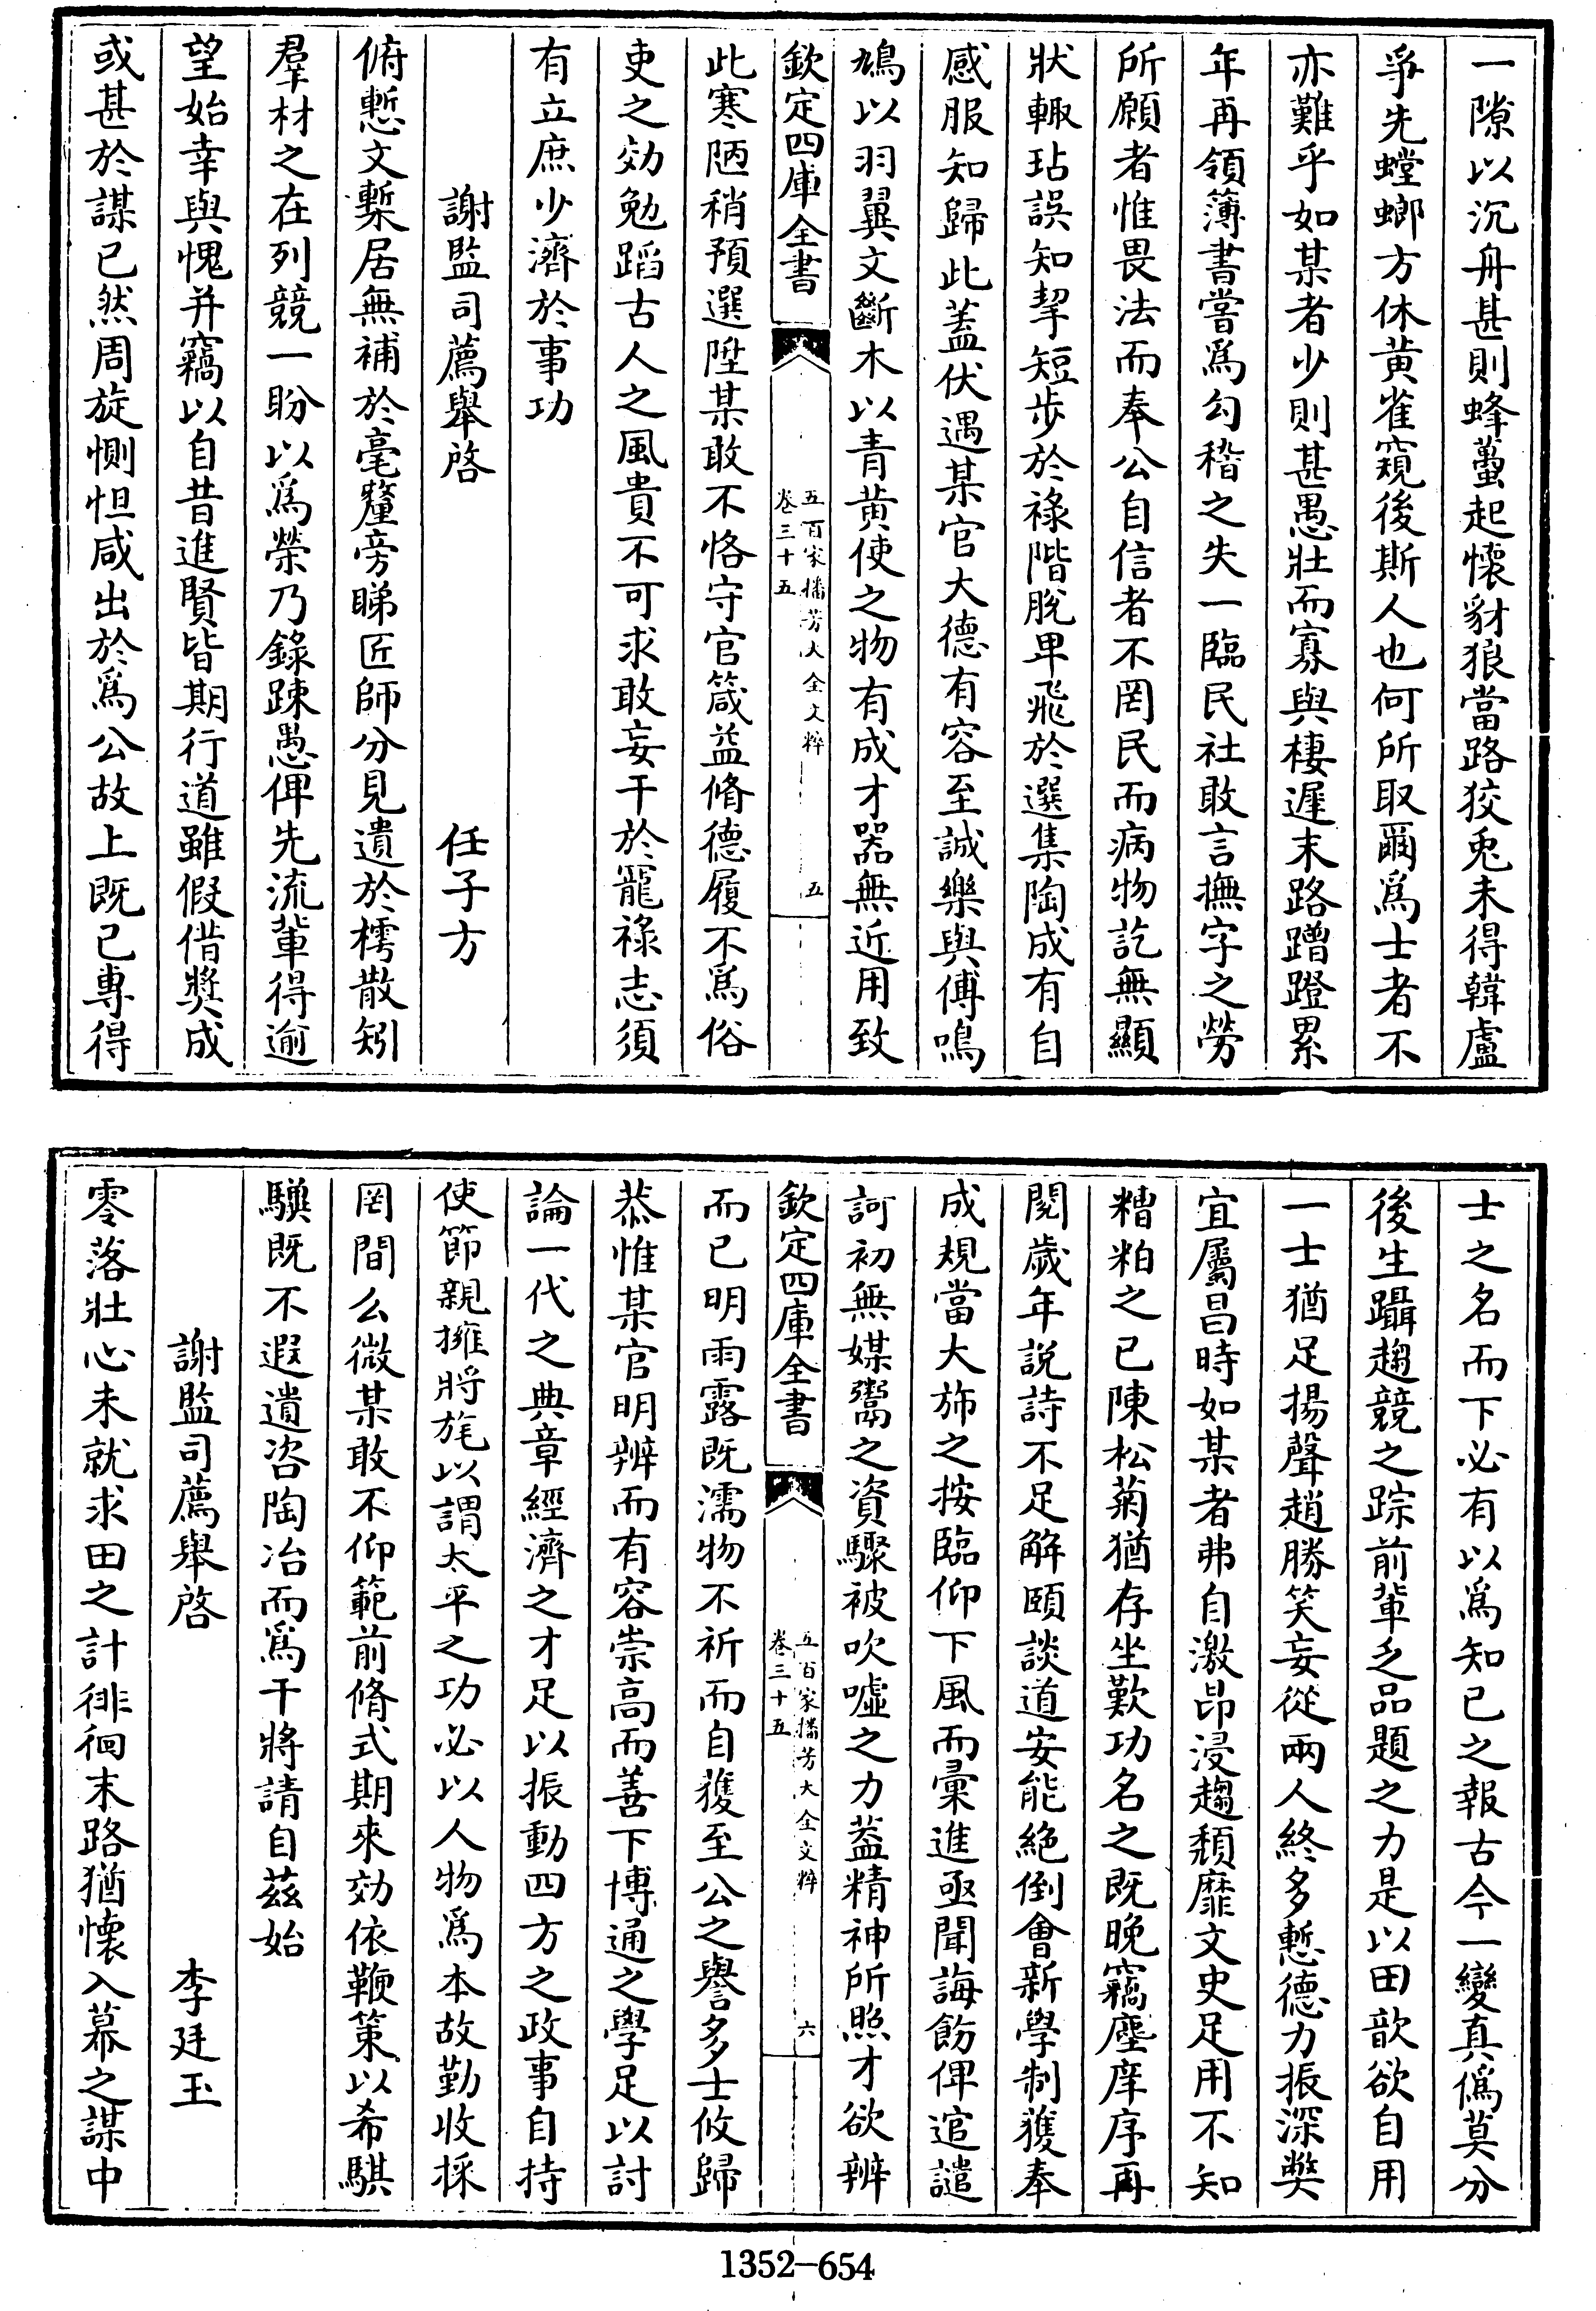 一隙以沉舟甚則蜂蠆起懷豺狼當路狡兎未得韓盧
爭先螳螂方休黃雀窺後斯人也何所取爾爲士者不
亦難乎如某者少則甚愚壯而寡與棲遲末路蹭蹬累
年再領薄書嘗爲勾稽之失一臨民社敢言撫字之勞
所願者惟畏法而奉公自信者不罔民而病物訖無顯
狀輙玷誤知挈短步於祿階脫卑飛於選集陶成有自
感服知歸此蓋伏遇某官大德有容至誠樂與傅鳴
鳩以羽翼文斷木以青黃使之物有成才器無近用致
欽定四庫全書
五百家播芳大全文粹
卷三十五
五
此寒陋稍預選陞某敢不恪守官箴益脩德履不爲俗
吏之効勉蹈古人之風貴不可求敢妄干於寵祿志須
有立庶少濟於事功
謝監司薦舉啓 任子方
俯慙文槧居無補於毫釐旁睇匠師分見遺於樗散矧
羣材之在列競一盼以爲榮乃錄踈愚俾先流輩得逾
望始幸與愧并竊以自昔進賢皆期行道雖假借奬成
或甚於謀已然周旋惻怛咸出於爲公故上既已專得
士之名而下必有以爲知已之報古今一變真僞莫分
後生躡趨競之踪前輩乏品題之力是以田歆欲自用
一士猶足揚聲趙勝笑妄從兩人終多慙德力振深弊
宜屬昌時如某者弗自激昂浸趨頹靡文史足用不知
糟粕之已陳松菊猶存坐歎功名之既晚竊塵庠序再
閱歲年說詩不足解頤談道安能絶倒會新學制獲奉
成規當大斾之按臨仰下風而彙進亟聞誨飭俾逭譴
訶初無媒鬻之資驟被吹噓之力蓋精神所照才欲辨
欽定四庫全書
五百家播芳大全文粹
卷三十五
六
而已明雨露既濡物不祈而自獲至公之譽多士攸歸
恭惟某官明辨而有容崇高而善下博通之學足以討
論一代之典章經濟之才足以振動四方之政事自持
使節親擁將旄以謂太平之功必以人物爲本故勤收採
罔間么微某敢不仰範前脩式期來効依鞭策以希騏
驥既不遐遺咨陶冶而爲干將請自茲始
謝監司薦舉啓 李廷玉
零落壯心未就求田之計徘徊末路猶懷入幕之謀中
1352-654